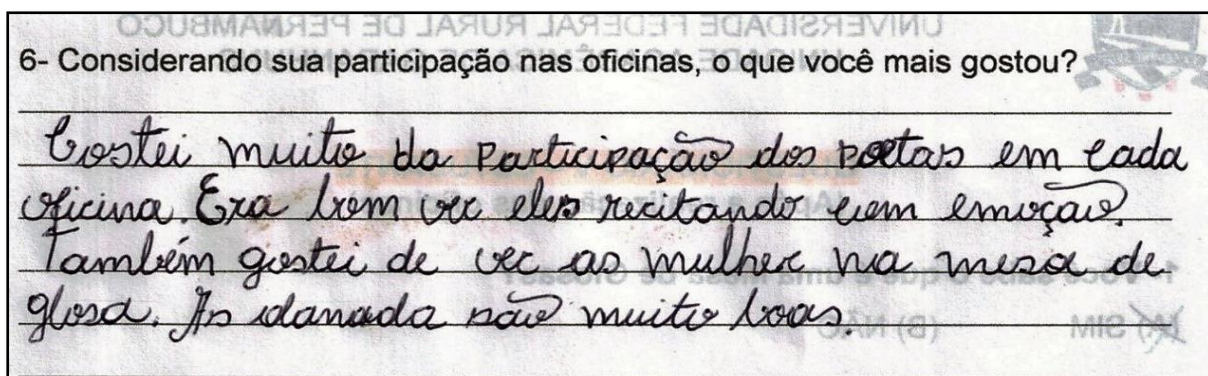 6- Considerando sua participação nas oficinas, o que você mais gostou?
Gostei muito da Participação dos poetas em cada
oficina. Era bom ver eles recitando com emoção.
Também gostei de ver as mulher na mesa de
glosa. As danada são muito boas.
UNIVERSIDADE FEDERAL RURAL DE PERNAMBUCO
(A) SIM (B) NÃO